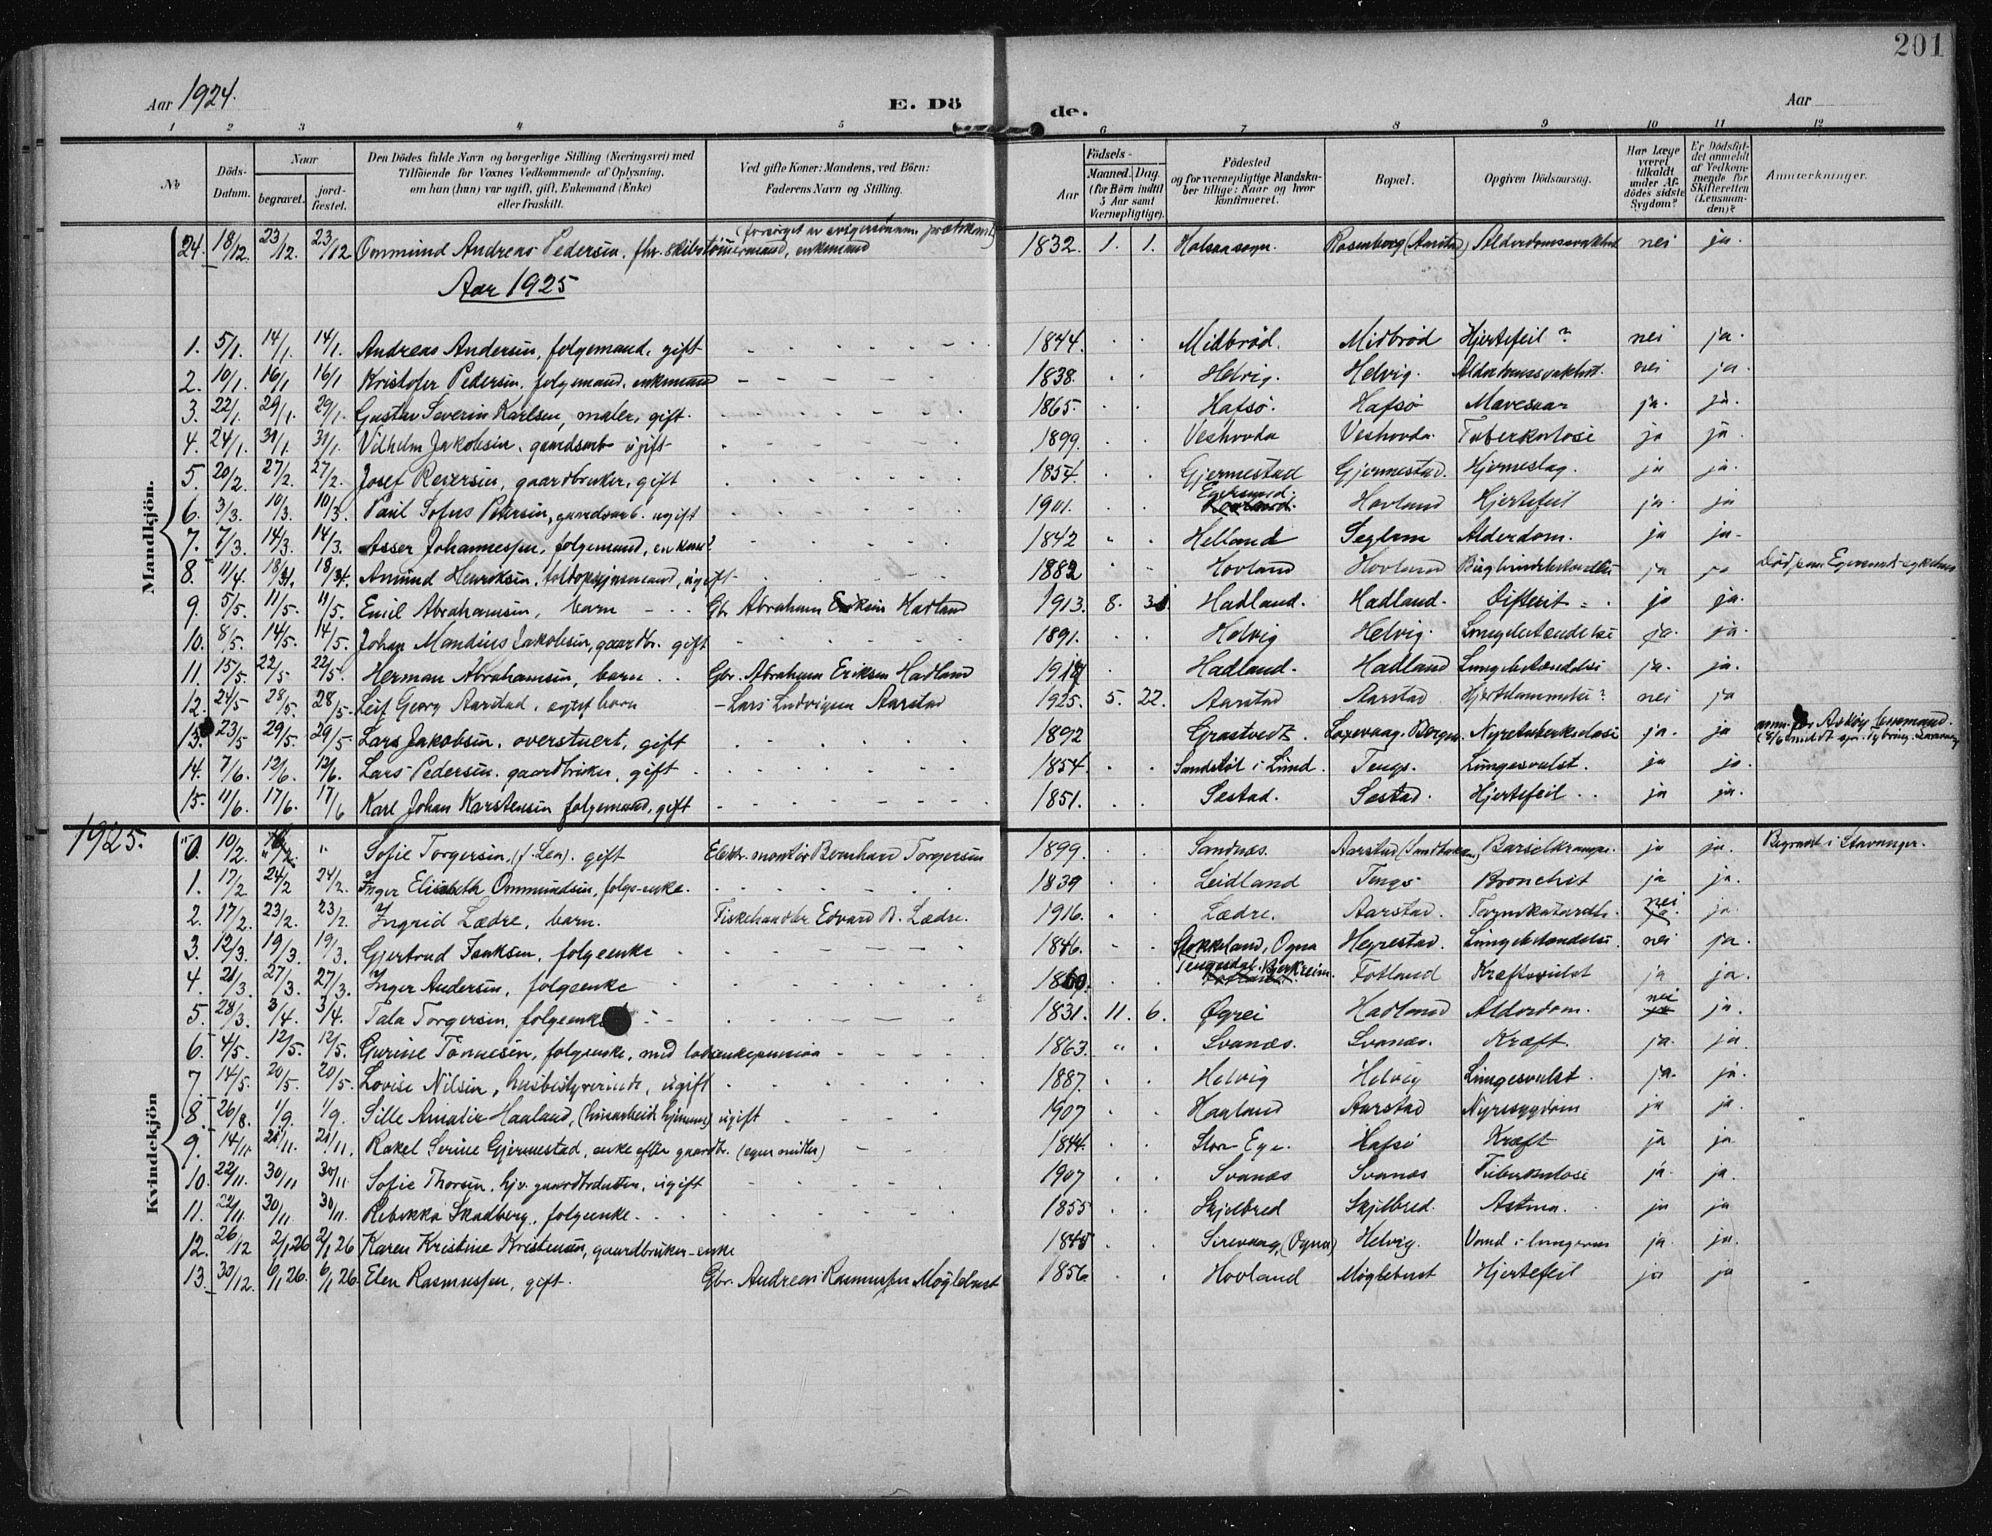 201
Aar 1924. E. Dö de. Aar
1 2 3 4 5 6 7 8 9 10 11 12
No
Döds-Datum.
Naar
begravet.
jord-fæstet.
Den Dödes fulde Navn og borgerlige Stilling (Næringsvei) med
Tilföiende for Voxnes Vedkommende af Oplysning,
om han (hun) var ugift, gift, Enkemand (Enke)
eller fraskilt.
Ved gifte Koner: Mandens, ved Börn:
Faderens Navn og Stilling.
Födsels-
Aar
Maaned. Dag.
(for Börn indtil
5 Aar samt
Værnepligtige).
Födested
og for værnepligtige Mandska-
ber tillige: Naar og hvor
konfirmeret.
Bopæl.
Opgiven Dödsaarsag.
Har Læge
været
tilkaldt
under Af-
dödes sidste
Sygdom?
Er Dödsfal-
det anmeldt
af Vedkom-
mende for
Skifteretten
(Lensman-
den)?
Anmærkninger.
24. 18/12. 23/12. 23/12 Ommund Andreas Pedersen, fhv. skibstømmermand, enkemand 1832. 1. 1. Rosenberg (Aarstad) Alderdomssvakhet nei ja.
Aar 1925
Mandkjön.
1. 5/1. 14/1. 14/1. Andreas Andersen, folgemand, gift 1844. Midbrød. Midbrød Hjertefeil? nei ja.
2. 10/1. 16/1 16/1 Kristofer Pedersen, folgemand, enkemand 1838. Helvig. Helvig. nei ja.
3. 22/1. 29/1. 29/1. Gustav Severin Karlsen, maler, gift. 1865. Hafsø. Hafsø Mavesaar ja. ja.
4. 24/1. 31/1. 31/1. Vilhelm Jakobsen, gaardsarb. ugift 1899. Veshovda Veshovda. Tuberkulose ja ja.
5. 20/2. 27/2. 27/2. Josef Reiersen, gaardbruker, gift 1854. Gjermestad Gjermestad. Hjerneslag. ja ja.
6. 3/3. 10/3. 10/3. Paul Sofus Petersen, gaardsarb. ugift 1901. Egersund. Hovland Hjertefeil ja. ja
7. 7/3. 14/3. 14/3. Asser Johannessen, folgemand, enkem? 1842 Helland Seglem Alderdom. ja ja.
8. 11/4. 18/4. 18/4. Amund Henriksen, ugift 1882 Hovland Hovland ja ja Død paa Egersunds sykehus
9. 5/5. 11/5. 11/5. Emil Abrahamsen, barn Gbr. Abraham Eriksen Hadland 1913. 8. 31. Hadland. Hadland. Difterit ja ja.
10. 8/5. 14/5. 14/5. Johan Mandius Jakobsen, gaardbr. gift 1891. Helvig Helvig. Lungebetændelse ja. ja.
11. 15/5. 22/5. 22/5. Herman Abrahamsen, barn Gbr. Abraham Eriksen Hadland Hadland. Hadland Lungebetændelse ja. ja.
12. 24/5 28/5. 28/5. Leif Georg Aarstad, egtef. barn - Lars Ludvigsen Aarstad 1925. 5. 22. Aarstad Aarstad Hjertelammelse? nei ja
13. 23/5 29/5. 29/5. Lars Jakobsen, overstuert, gift 1892 Grastvedt. Loxevaag. Bergen. Nyretuberkulose ja. ja anm. for Askøy lensmand.
14. 7/6. 12/6. 12/6. Lars Pedersen, gaardbruker, gift 1854. Sandstøl i Lund. Tengs. Lungesvulst. ja ja.
15. 11/6. 17/6. 17/6 Karl Johan Karstensen folgemand, gift 1851. Sæstad. Sæstad. Hjertefeil ja ja.
1925.
Kvindekjön
0. 10/2. Sofie Torgersen, (f. Lea). gift Elektr. montör Bernhard Torgersen 1899. Sandnæs. Aarstad (Sandbakken) Barselkrampe. ja ja. Begravet i Stavanger.
1. 17/2 24/2 24/2. Inger Elisabeth Ommundsen, folge-enke. 1839 Leidland Tengs Bronchit ja ja.
2. 17/2. 23/2. 23/2. Ingrid Lædre, barn. Fiskehandler Edvard B. Lædre. 1916. Lædre. Aarstad. Tarmkatarrh. nei ja.
3. 12/3. 19/3. 19/3. Gjertrud Isaksen, folgeenke 1846. Stokkeland, Ogna Hegrestad. Lungebetændelse nei ja.
4. 21/3. 27/3. 27/3. Inger Andersen, folgeenke 1860. Tengesdal. Bjerkreim. Fotland Kræftsvulst ja ja.
5. 28/3. 3/4. 3/4. Tala Torgersen, folgeenke 1831. 11. 6. Øgrei Hadland Alderdom. nei ja.
6. 4/5. 12/5. 12/5. Gurine Tönnesen, folgeenke, med losenkepension 1863. Svanæs. Svanæs. Kræft. ja. ja.
7. 14/5. 20/5. 20/5. Lovise Nilsen, husbestyrerinde, ugift 1887. Helvig Helvig Lungesvulst. ja. ja.
8. 26/8. 1/9. 1/9. Sille Amalie Haaland, (husarbeide hjemme) ugift 1907. Haaland Aarstad Nyresygdom ja ja.
9. 14/11 21/11. 21/11. Rakel Serine Gjermestad, enke efter gaardbr. (egne midler) 1844. Stor Ege. Hafsø Kræft ja ja
10. 22/11. 30/11 30/11. Sofie Thorsen, hjv. gaardbrdatter, ugift 1907 Svanæs Svanæs Tuberkulose ja. ja.
11. 22/11 30/11. 30/11. Rebekka Skadberg, folgeenke. 1855 Skjelbred Skjelbred. Astma. ja ja
12. 26/12 2/1 26 2/1 26 Karen Kristine Kristensen, gaardbruker-enke 1845 Sirevaag, (Ogna) Helvig. Vand i lungerne ja. ja.
13. 30/12. 6/1 26. 6/1 26. Elen Rasmussen, gift. Gbr. Andreas Rasmussen Møglebust 1856. Hovland Møglebust Hjertefeil ja ja